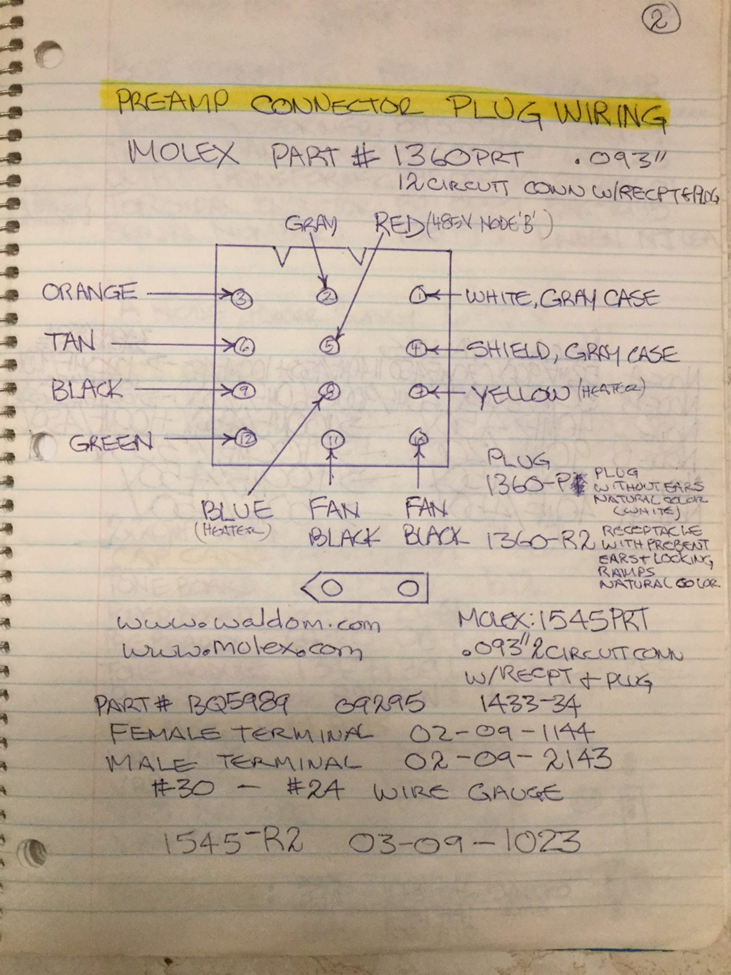 2
PREAMP CONNECTOR PLUG WIRING
MOLEX PART # 1360PRT .093"
12 CIRCUIT CONN W/RECPT & PLUG
GRAY RED (485V NODE 'B')
ORANGE 3 2 1 WHITE, GRAY CASE
TAN 6 5 4 SHIELD, GRAY CASE
BLACK 9 8 7 YELLOW (HEATER)
GREEN 12 11 10
BLUE FAN FAN
(HEATER) BLACK BLACK
PLUG
1360-P PLUG
WITHOUT EARS
NATURAL COLOR
(WHITE)
1360-R2 RECEPTACLE
WITH PREBENT
EARS & LOCKING
RAMPS
NATURAL COLOR
www.waldom.com
www.molex.com
Molex: 1545PRT
.093" 2 CIRCUIT CONN
W/RECPT & PLUG
PART# BQ5989 09295 1433-34
FEMALE TERMINAL 02-09-1144
MALE TERMINAL 02-09-2143
#30 - #24 WIRE GAUGE
1545-R2 03-09-1023